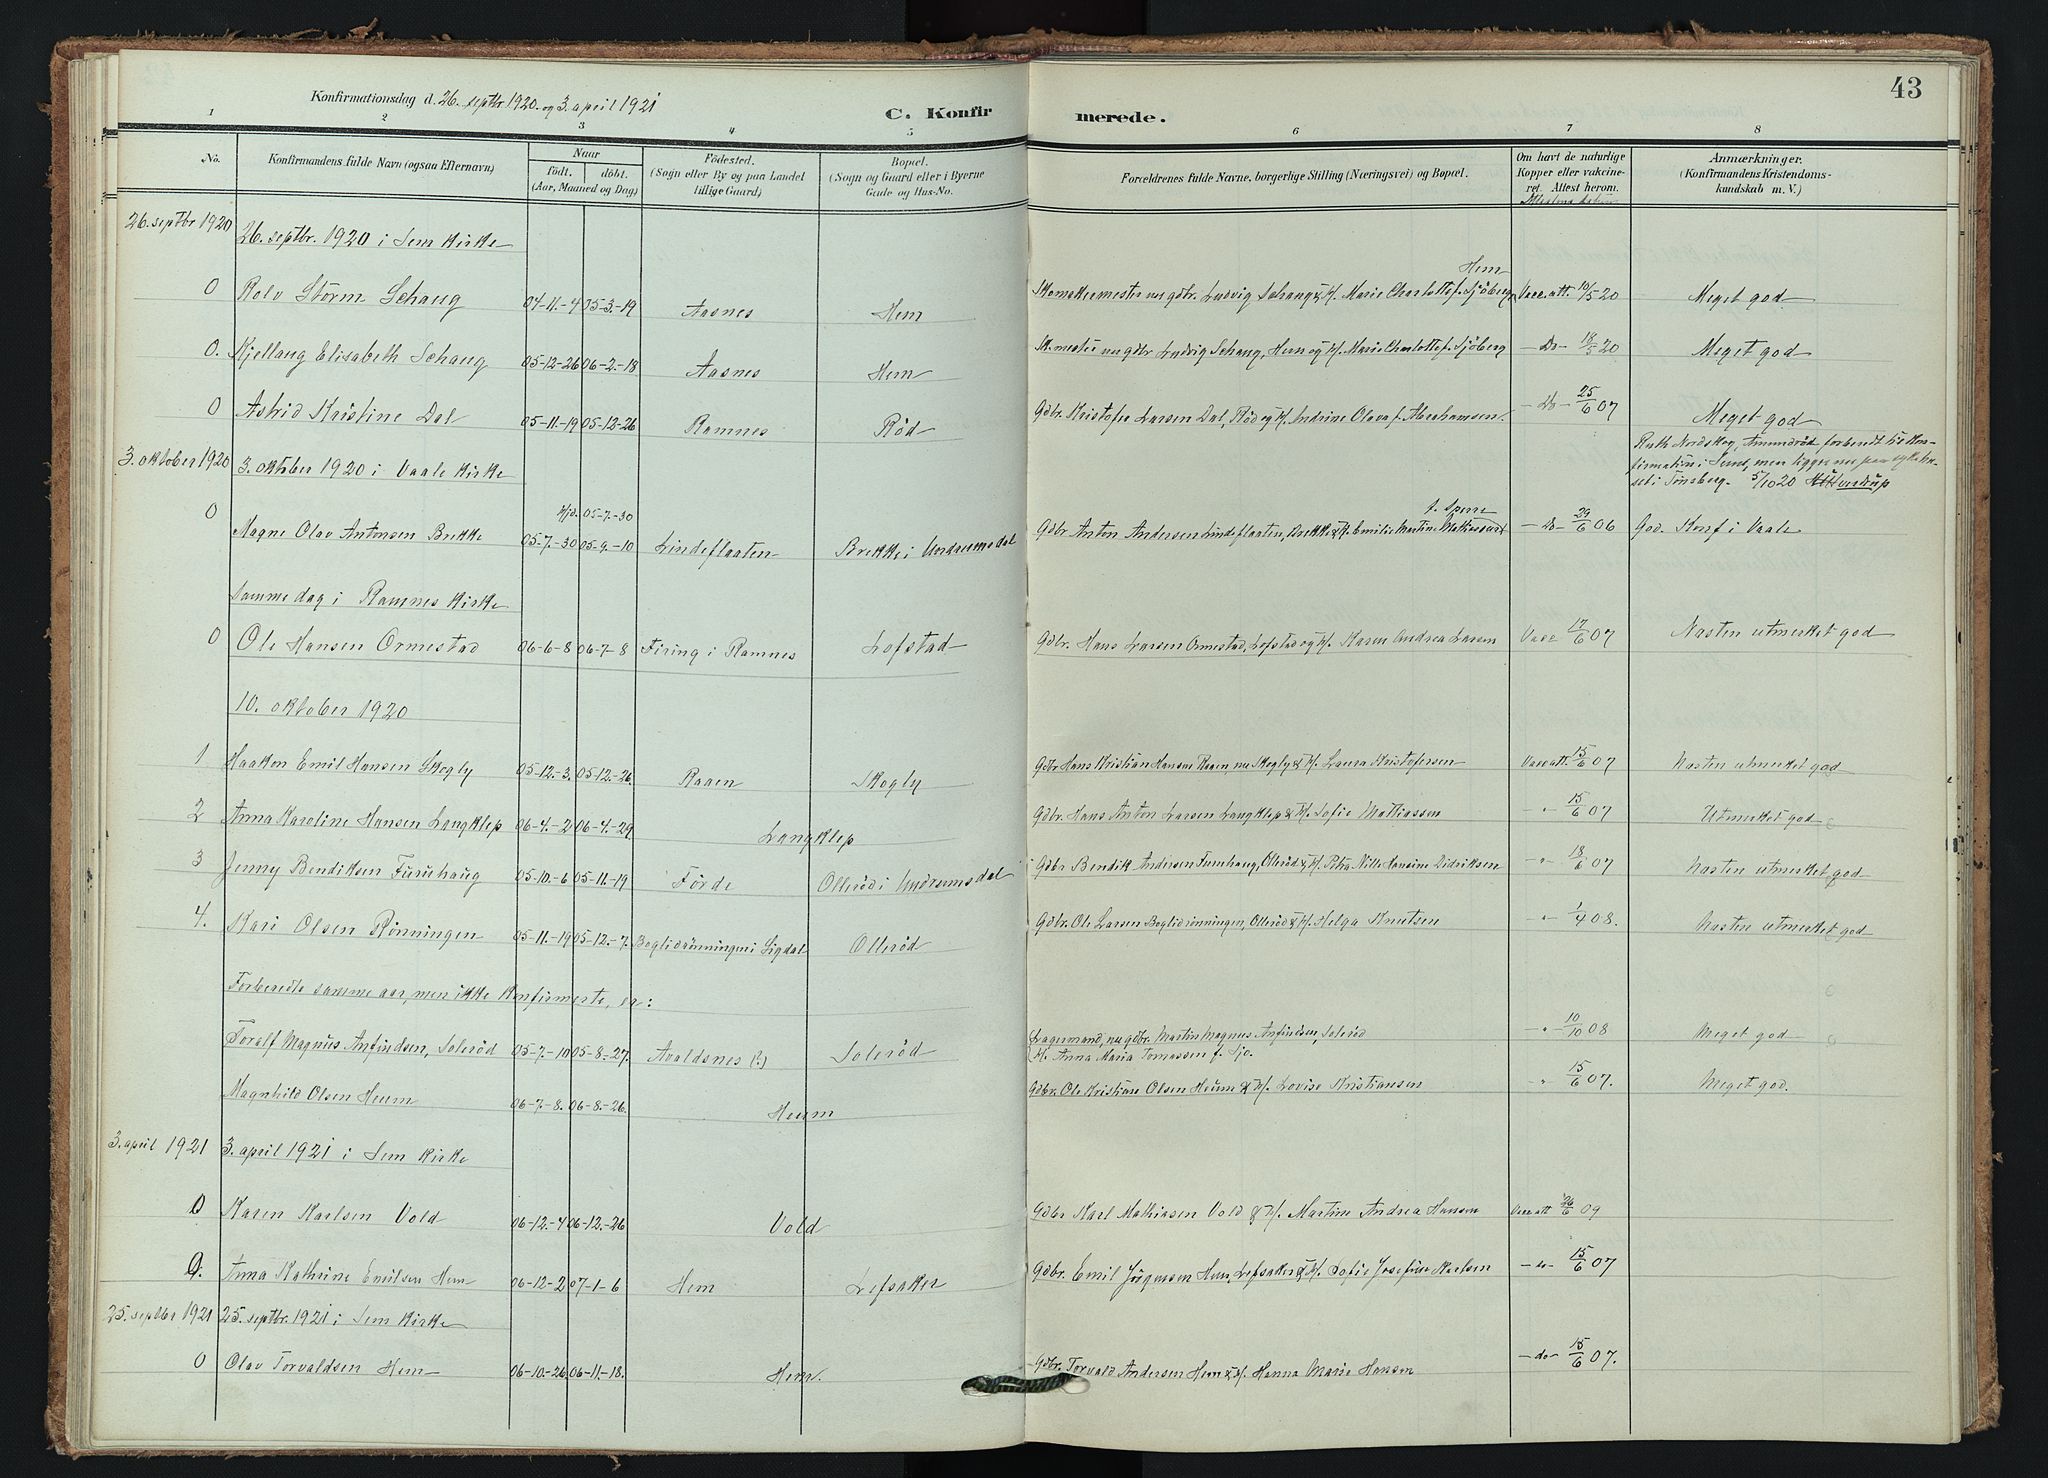 43
Konfirmationsdag d. 26. septbr 1920. og 3. april 1921
C. Konfirmerede.
1 2 3 4 5 6 7 8
No.
Konfirmandens fulde Navn (ogsaa Efternavn)
Naar
födt. döbt.
(Aar, Maaned og Dag)
Födested.
(Sogn eller By og paa Landet
tillige Gaard)
Bopæl.
(Sogn og Gaard eller i Byerne
Gade og Hus-No.
Forældrenes fulde Navne, borgerlige Stilling (Næringsvei) og Bopæl.
Om havt de naturlige
Kopper eller vakcine-
ret. Attest herom.
Attestens datum
Anmærkninger.
(Konfirmandens Kristendoms-
kundskab m. V.)
26. septbr 1920 26. septbr. 1920 i Sem kirke
Hem
0 Rolv Storm Schaug 04-11.-4 05-3.-19 Aasnes Hem Skomakermester nu gdbr. Ludvig Schaug & H. Marie Charlotte f. Sjöberg Vacc. att. 10/5 20 Meget god
0. Kjellaug Elisabeth Schaug 05-12-26 06-2.-18 Aasnes Hem Sk.mester nu gdbr Ludvig Schaug, Hem og H. Marie Charlotte f. Sjöberg - Do - 18/5 20 Meget god
0 Astrid Kristine Dal 05-11.-19 05-12-26 Ramnes Röd Gdbr. Kristofer Larsen Dal, Röd og H. Andrine Olava f. Abrahamsen. - Do - 25/6 07 Meget god
3. oktober 1920 3. oktober 1920 i Vaale kirke
Ruth Nordskog, Amundröd forberedt til kon-
firmation i Sem, men ligger nu paa sykehu-
set i Tönsberg. 5/10 20
Hjd. 05-7.-30
0 Magne Olav Antonsen Brekke 05-7.-30 05-9.-10 Lindeflaaten Brekke i Undrumsdal Gdbr Anton Andersen Lindeflaaten, Brekke & H. Emilie Martine Mathiassen - Do - 29/6 06 God. Konf i Vaale
Samme dag i Ramnes kirke
0 Ole Hansen Ormestad 06-6-8 06-7-8 Firing i Ramnes Lofstad Gdbr. Hans Larsen Ormestad, Lofstad og H. Karen Andrea Larsen Vacc 17/6 07 Næsten utmerket god
10. oktober 1920
1 Haakon Emil Hansen Skogly 05-12.-3. 05-12.-26. Raaen Skogly Gdbr Hans Kristian Hansen Raaen, nu Skogly & H. Laura Kristofersen Vacc att. 15/6 07 Næsten utmerket god
2 Anna Karoline Hansen Langklep 06-4.-2 06-4.-29. Langklep Gdbr. Hans Anton Larsen Langklep & H. Sofie Mathiassen - " - 15/6 07 Utmerket god
3 Jenny Bendiksen Furuhaug 05-10.-6 05-11.-19 Förde Olleröd i Undrumsdal Gdbr Bendik Andersen Furuhaug, Olleröd & H. Petra Nille Hansine Didriksen - " - 18/6 07 Næsten utmerket god
4. Kari Olsen Rönningen 05-11.-19 05-12.-7. Boglidrönningen i Sigdal Olleröd Gdbr. Ole Larsen Boglidrönningen, Olleröd & H. Helga Knutsen - " - 1/4 08. Næsten utmerket god
Forberedte samme aar, men ikke konfirmerte, er:
Toralf Magnus Anfindsen, Soleröd 05-7.-10 05-8.-27. Avaldsnes (?) Soleröd Lagermand, nu gdbr. Martin Magnus Anfindsen, Soleröd
H. Anna Maria Tomassen f. Sjo. - " - 10/10 08 Meget god
Magnhild Olsen Heum 06-7-8. 06-8.-26. Heum Gdbr. Ole Kristian Olsen Heum & H. Lovise Kristiansen - " - 15/6 07. Meget god.
3. april 1921 3. april 1921 i Sem kirke
0 Karen Karlsen Vold 06-12.-4 06-12.-26 Vold Gdbr Karl Mathiasen Vold & H. Martine Andrea Hansen Vacc att 26/6 09
0. Anna Kathrine Emilsen Hem 06-12-2 07-1-6 Hem Lefsaker Gdbr. Emil Jörgensen Hem, Lefsaker & H. Sofie Josefine Karlsen - " - 15/6 07
25. septbr 1921 25. septbr. 1921 i Sem kirke
0 Olav Torvaldsen Hem 06-10.-26 06-11.-18. Hem. Gdbr. Torvald Andersen Hem & H. Hanna Marie Hansen - do - 15/6 07.